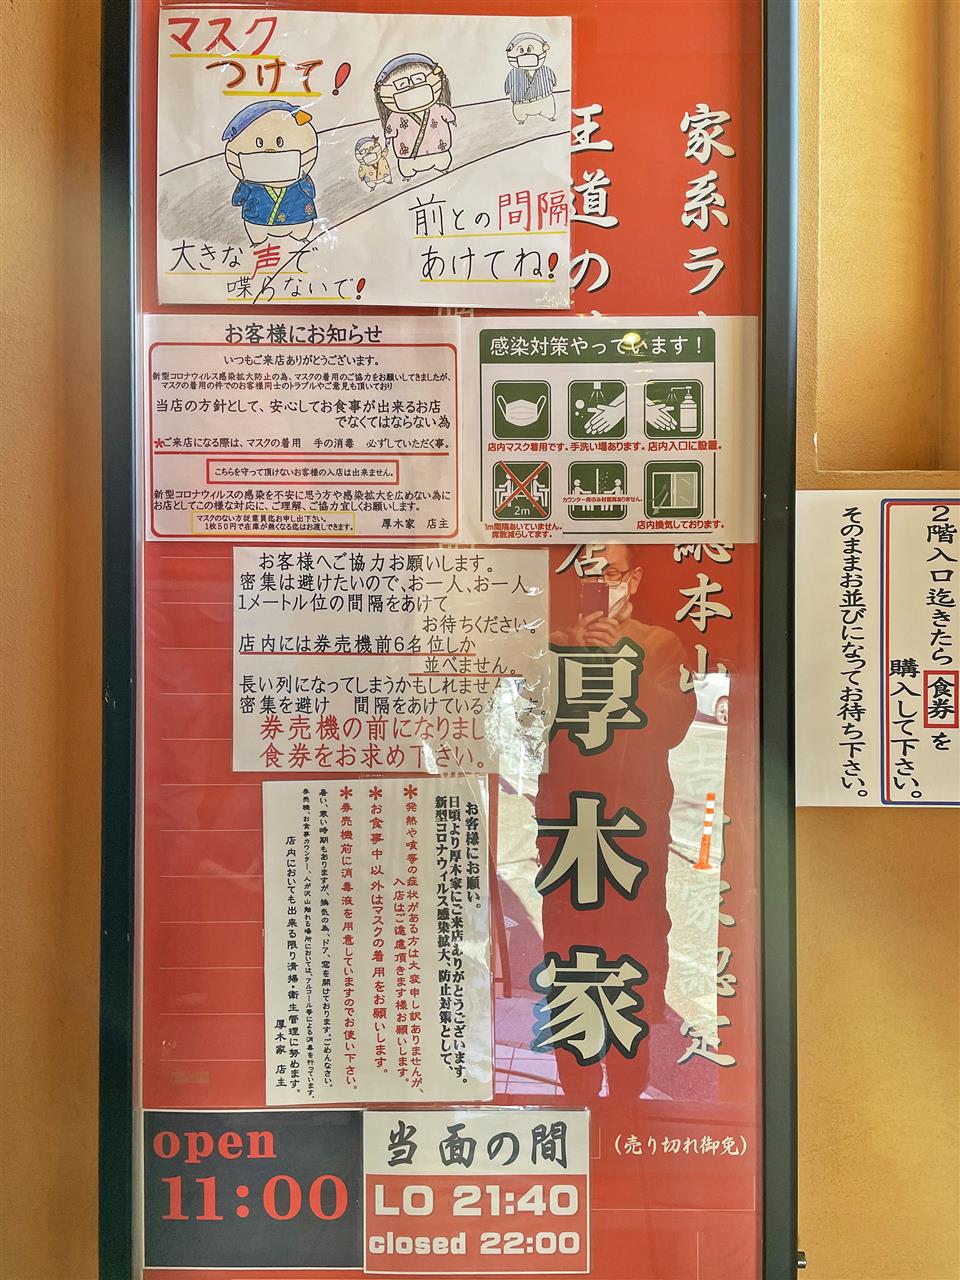 マスク
つけて!
大きな声で
喋らないで!
前との間隔
あけてね!
家系ラ
王道の
総本山
店
厚木家
家認定
お客様にお知らせ
いつもご来店ありがとうございます。
新型コロナウィルス感染拡大防止の為、マスクの着用のご協力をお願いしてきましたが、
マスクの着用の件でのお客様同士のトラブルやご意見も頂いており
当店の方針として、安心してお食事が出来るお店
でなくてはならない為
*ご来店になる際は、マスクの着用 手の消毒 必ずしていただく事。
こちらを守って頂けないお客様の入店は出来ません。
新型コロナウィルスの感染を不安に思う方や感染拡大を広めない為に
お店としてこの様な対応に、ご理解、ご協力宜しくお願いします。
マスクのない方従業員迄お申し出下さい。
1枚50円で在庫が無くなる迄はお渡しできます。
厚木家 店主
感染対策やっています!
店内マスク着用です。
手洗い場あります。
店内入口に設置。
2m
1m間隔あいていません。
席数減らしてます。
カウンター席のみ対面席ありません。
店内換気しております。
お客様へご協力お願いします。
密集は避けたいので、お一人、お一人
1メートル位の間隔をあけて
お待ちください。
店内には券売機前6名位しか
並べません。
長い列になってしまうかもしれません
密集を避け 間隔をあけている
券売機の前になりまし
食券をお求め下さい。
お客様にお願い。
日頃より厚木家にご来店ありがとうございます。
新型コロナウィルス感染拡大、防止対策として、
*発熱や咳等の症状がある方は大変申し訳ありませんが、
入店はご遠慮頂きます様お願いします。
*お食事中以外はマスクの着用をお願いします。
*券売機前に消毒液を用意していますのでお使い下さい。
暑い、寒い時期もありますが、換気の為、ドア、窓を開けております。ごめんなさい。
券売機、お食事カウンター、人が沢山触れる場所においては、アルコール等による消毒を行っています。
店内においても出来る限り清掃・衛生管理に努めます。
厚木家 店主
2階入口迄きたら食券を
購入して下さい。
そのままお並びになってお待ち下さい。
open
11:00
当面の間
LO 21:40
closed 22:00
(売り切れ御免)